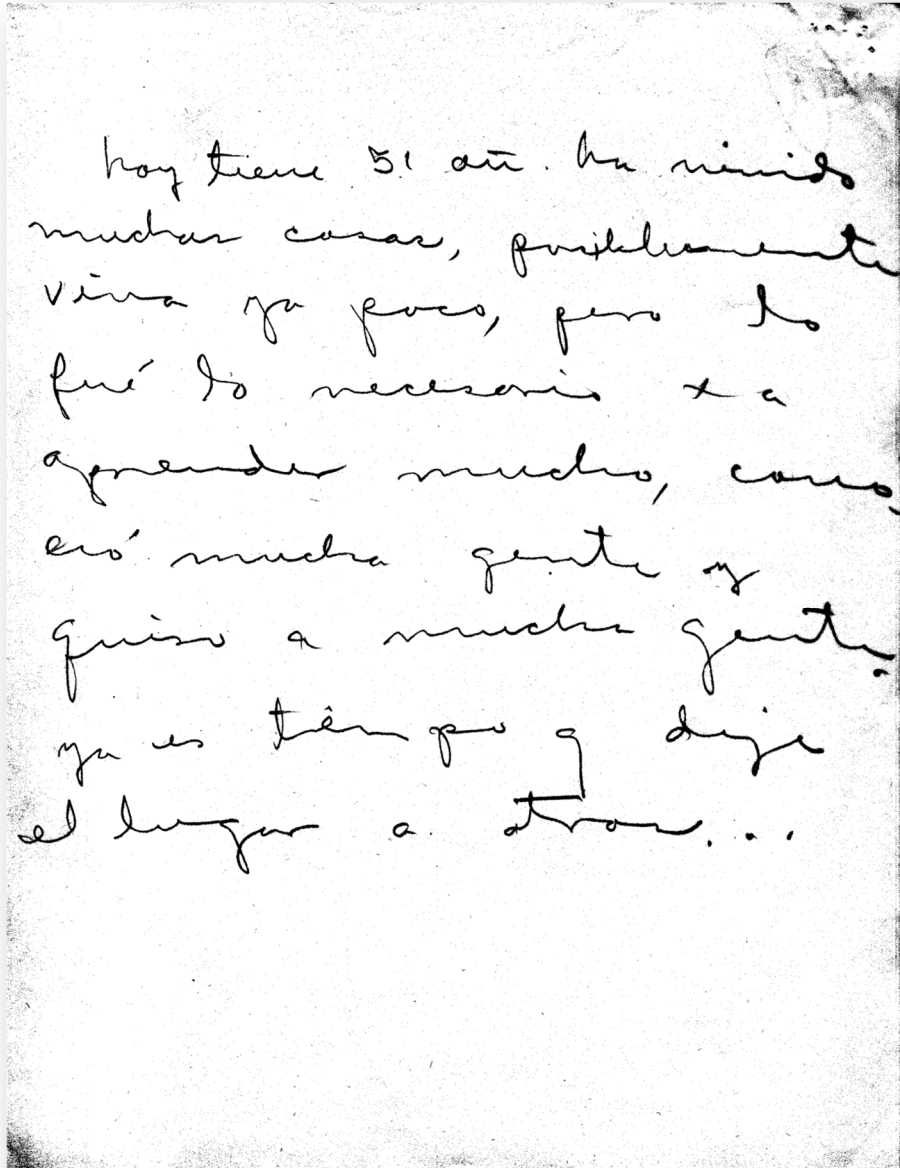 hoy tiene 51 añ. ha vivido
muchas cosas, posiblemente
viva ya poco, pero lo
fué lo necesario x a
aprender mucho, cono-
ció mucha gente y
quiso a mucha gente.
ya es tiempo q deje
el lugar a otros...